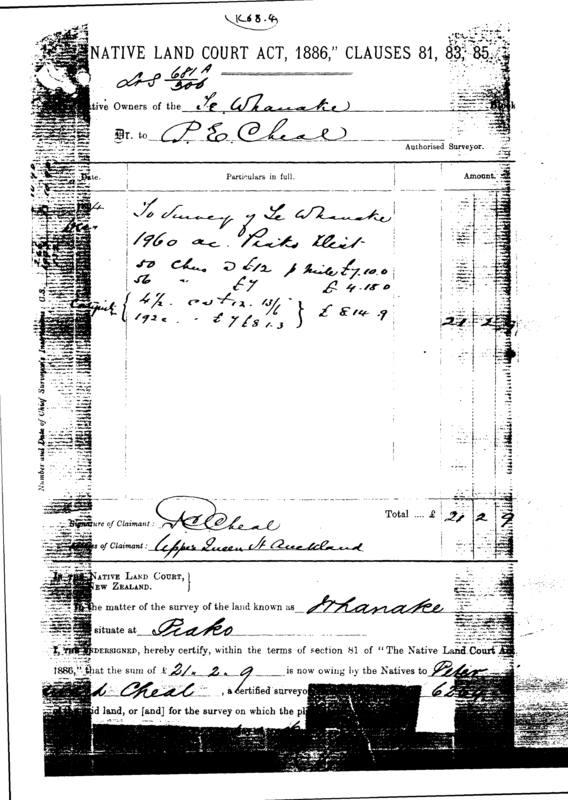 K68.4
NATIVE LAND COURT ACT, 1886," CLAUSES 81, 83, 85.
681A
306
Native Owners of the Te Whanake Block
Dr. to P. E. Cheal
Authorised Surveyor.
Date. Particulars in full. Amount.
To Survey of Te Whanake
1960 ac. Piako Dist
50 chns @ £12 p mile £7.10.0
56 " £7 £ 4.18 0
4½ £12. 13/6
192 " £7 £8 1.3 } £ 8 14.9
21 2 9
Number and Date of Chief Surveyor's
Total .... £ 21 2 9
Signature of Claimant: P E Cheal
of Claimant: Upper Queen St Auckland
IN THE NATIVE LAND COURT,
NEW ZEALAND.
In the matter of the survey of the land known as Whanake
situate at Piako
I, THE UNDERSIGNED, hereby certify, within the terms of section 81 of "The Native Land Court Act
1886," that the sum of £ 21. 2. 9 is now owing by the Natives to Peter
Cheal, a certified surveyo
said land, or [and] for the survey on which the pl